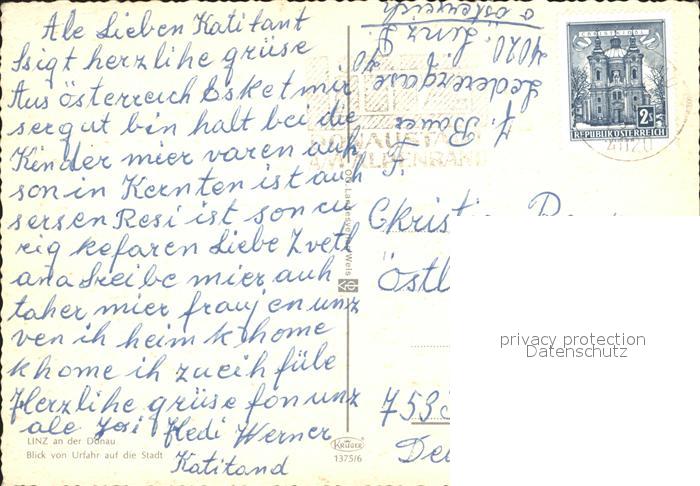 Ale Lieben Katitant
Ssigt herzlihe grüse
Aus österreich Esket mir
sergut bin halt bei die
Kinder mier varen auh
son in Kernten ist auh
sersen Resi ist son cu
rig kefaren Liebe Zvetl
ana Sreibe mier auh
taher mier fraujen unz
ven ih heim k home
k home ih zu eih füle
Herzlihe grüse fon unz
ale Josi Hedi Werner
Katitand
LINZ an der Donau
Blick von Urfahr auf die Stadt
KRÜGER
1375/6
J. Bauer
Lederergase
4020, Linz
a österreich
CHRISTKINDL
2 S
REPUBLIK ÖSTERREICH
4020
Östl
753
De
privacy protection
Datenschutz